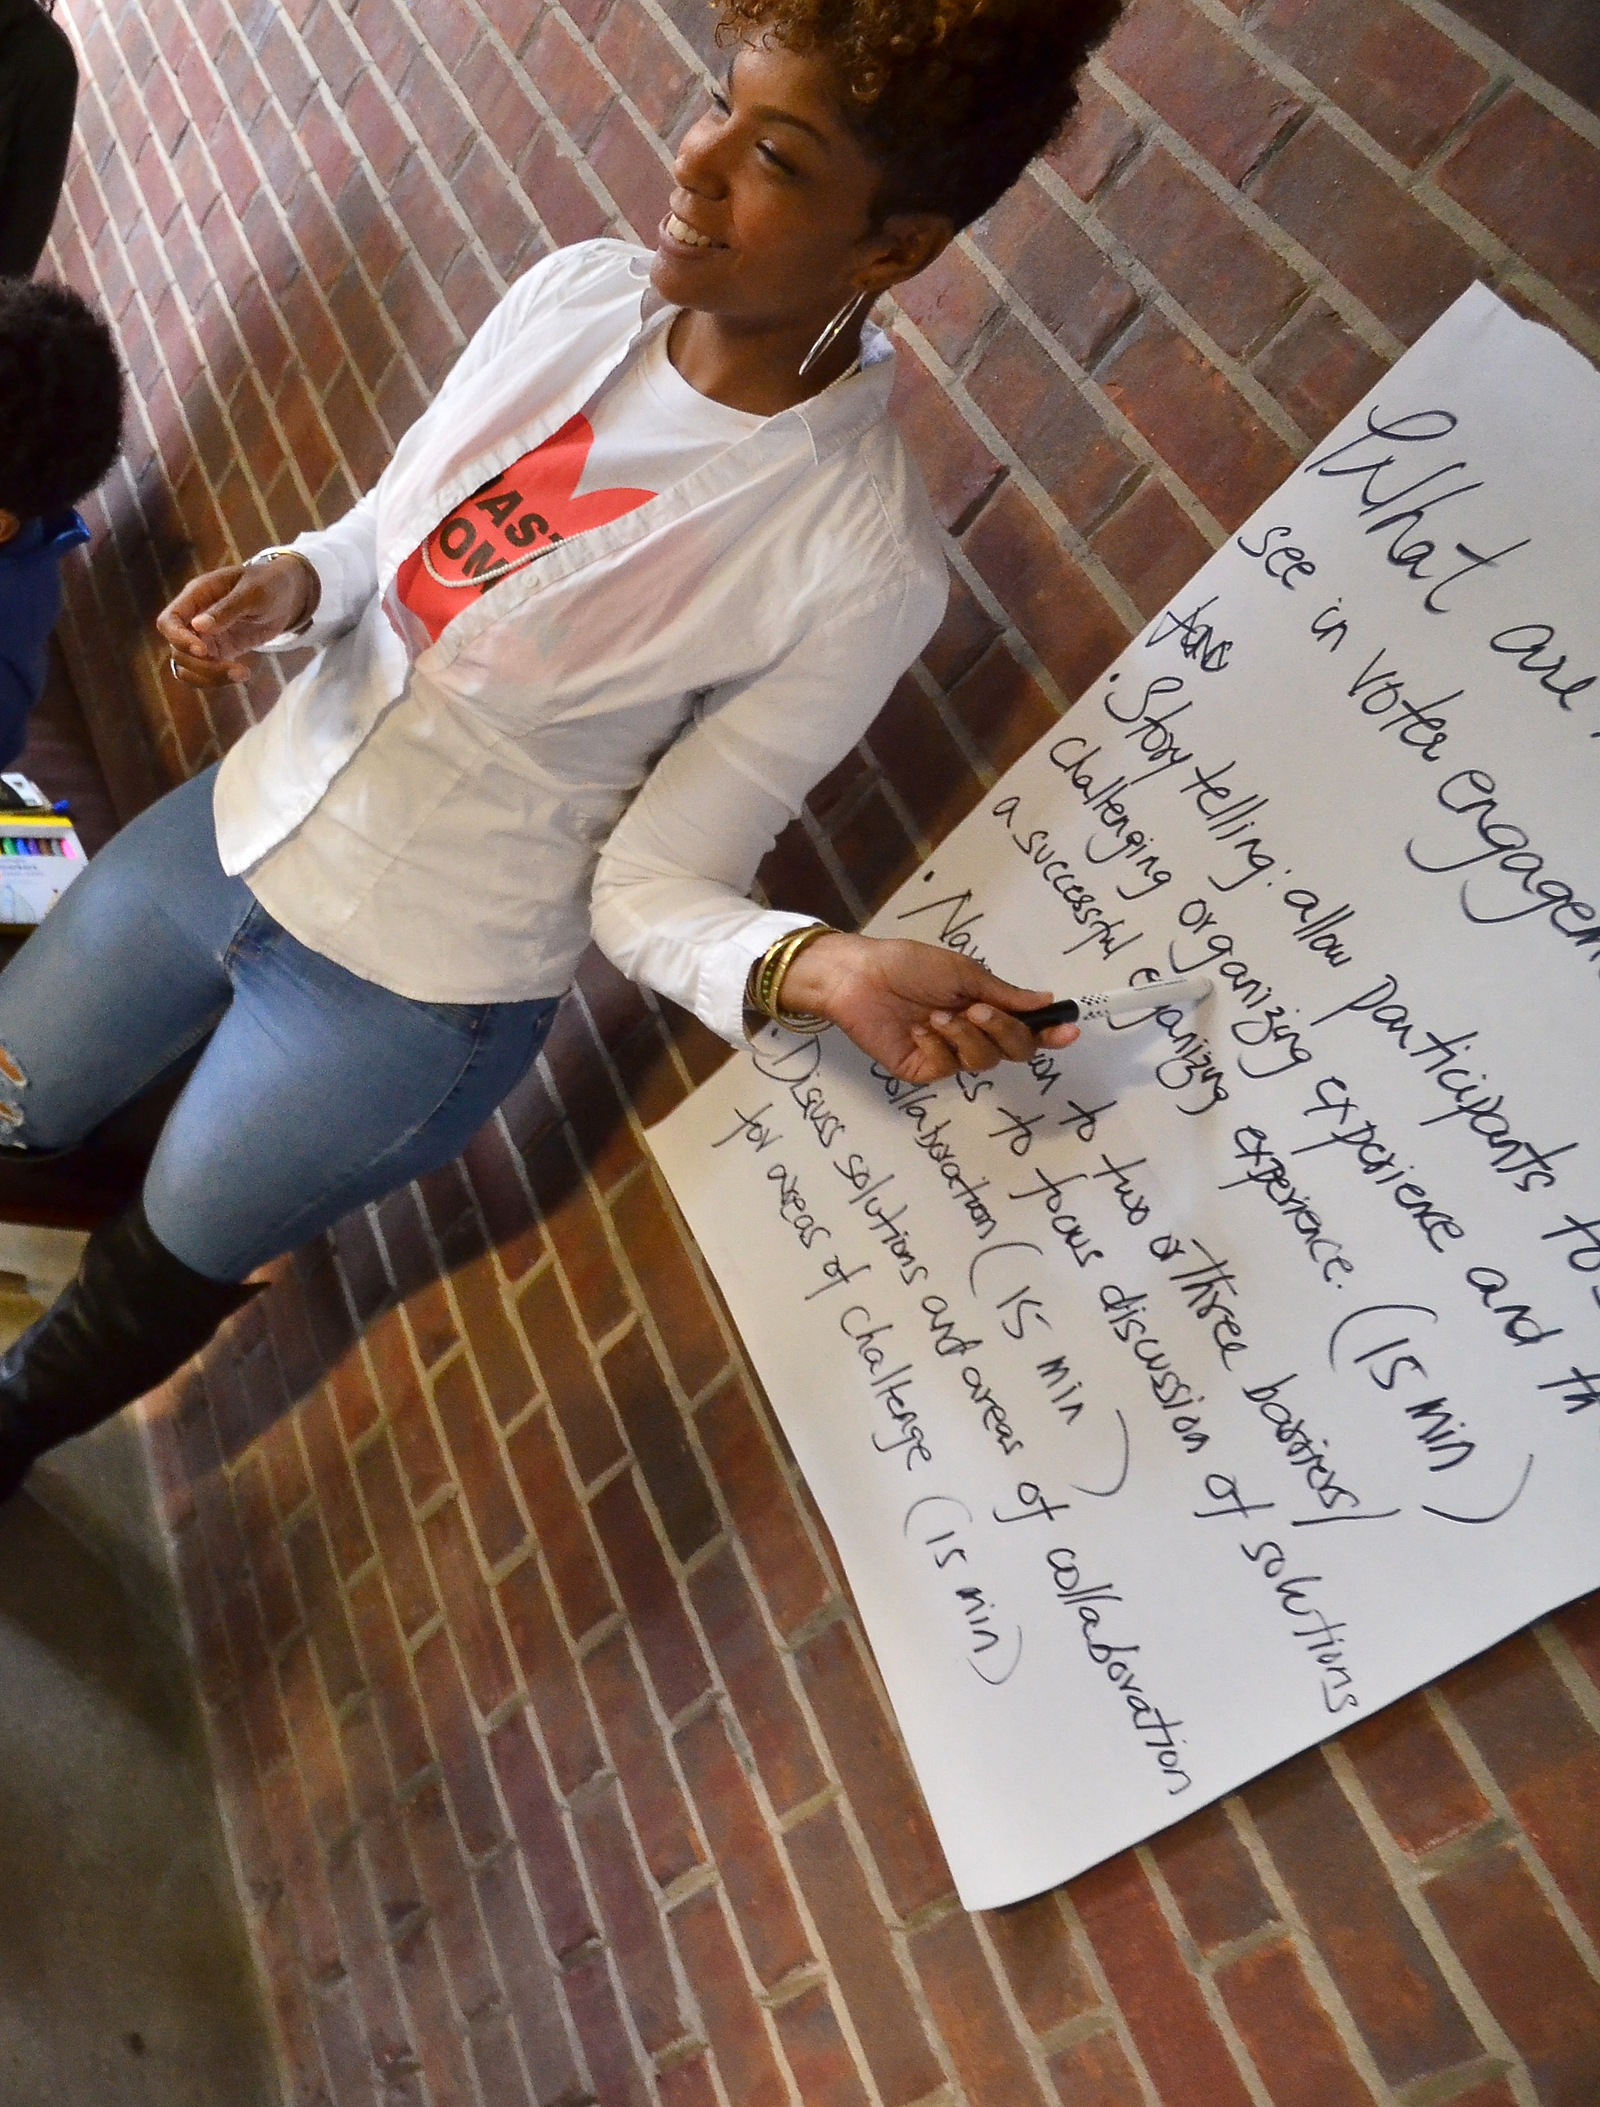 What are
see in voter engagem
Story telling: allow participants to s
challenging organizing experience and th
a successful organizing experience. (15 min)
Na on to two or three barriers/
es to focus discussion of solutions
collaboration (15 min)
Discuss solutions and areas of collaboration
for areas of challenge (15 min)
AST
OM